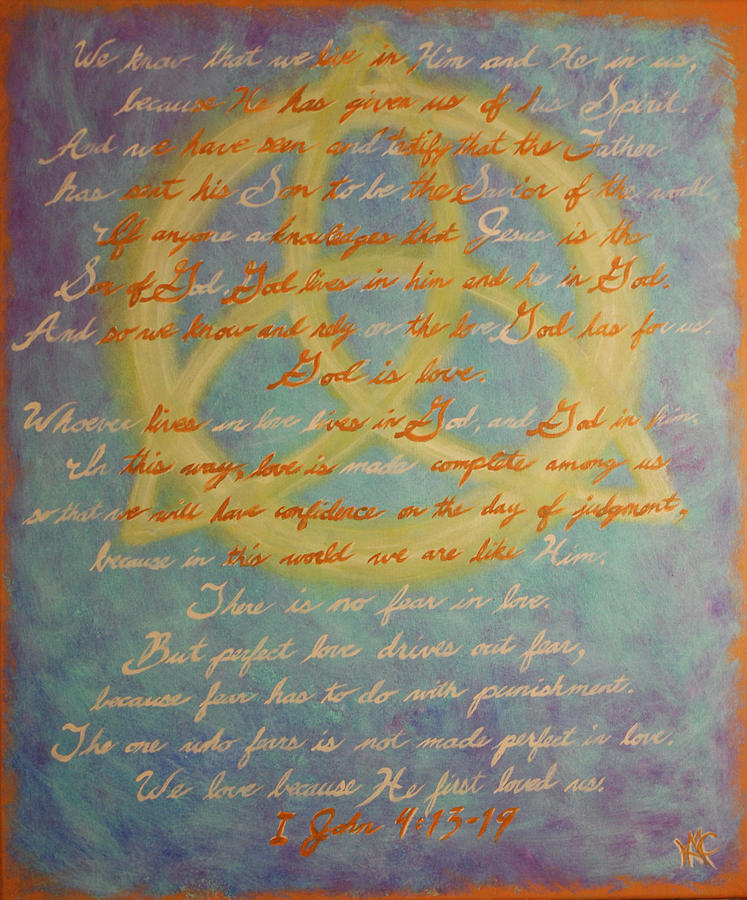 We know that we live in Him and He in us,
because He has given us of his Spirit.
And we have seen and testify that the Father
has sent his Son to be the Savior of the world.
If anyone acknowledges that Jesus is the
Son of God, God lives in him and he in God.
And so we know and rely on the love God has for us.
God is love.
Whoever lives in love lives in God, and God in him.
In this way, love is made complete among us
so that we will have confidence on the day of judgment,
because in this world we are like Him.
There is no fear in love.
But perfect love drives out fear,
because fear has to do with punishment.
The one who fears is not made perfect in love.
We love because He first loved us.
I John 4:13-19